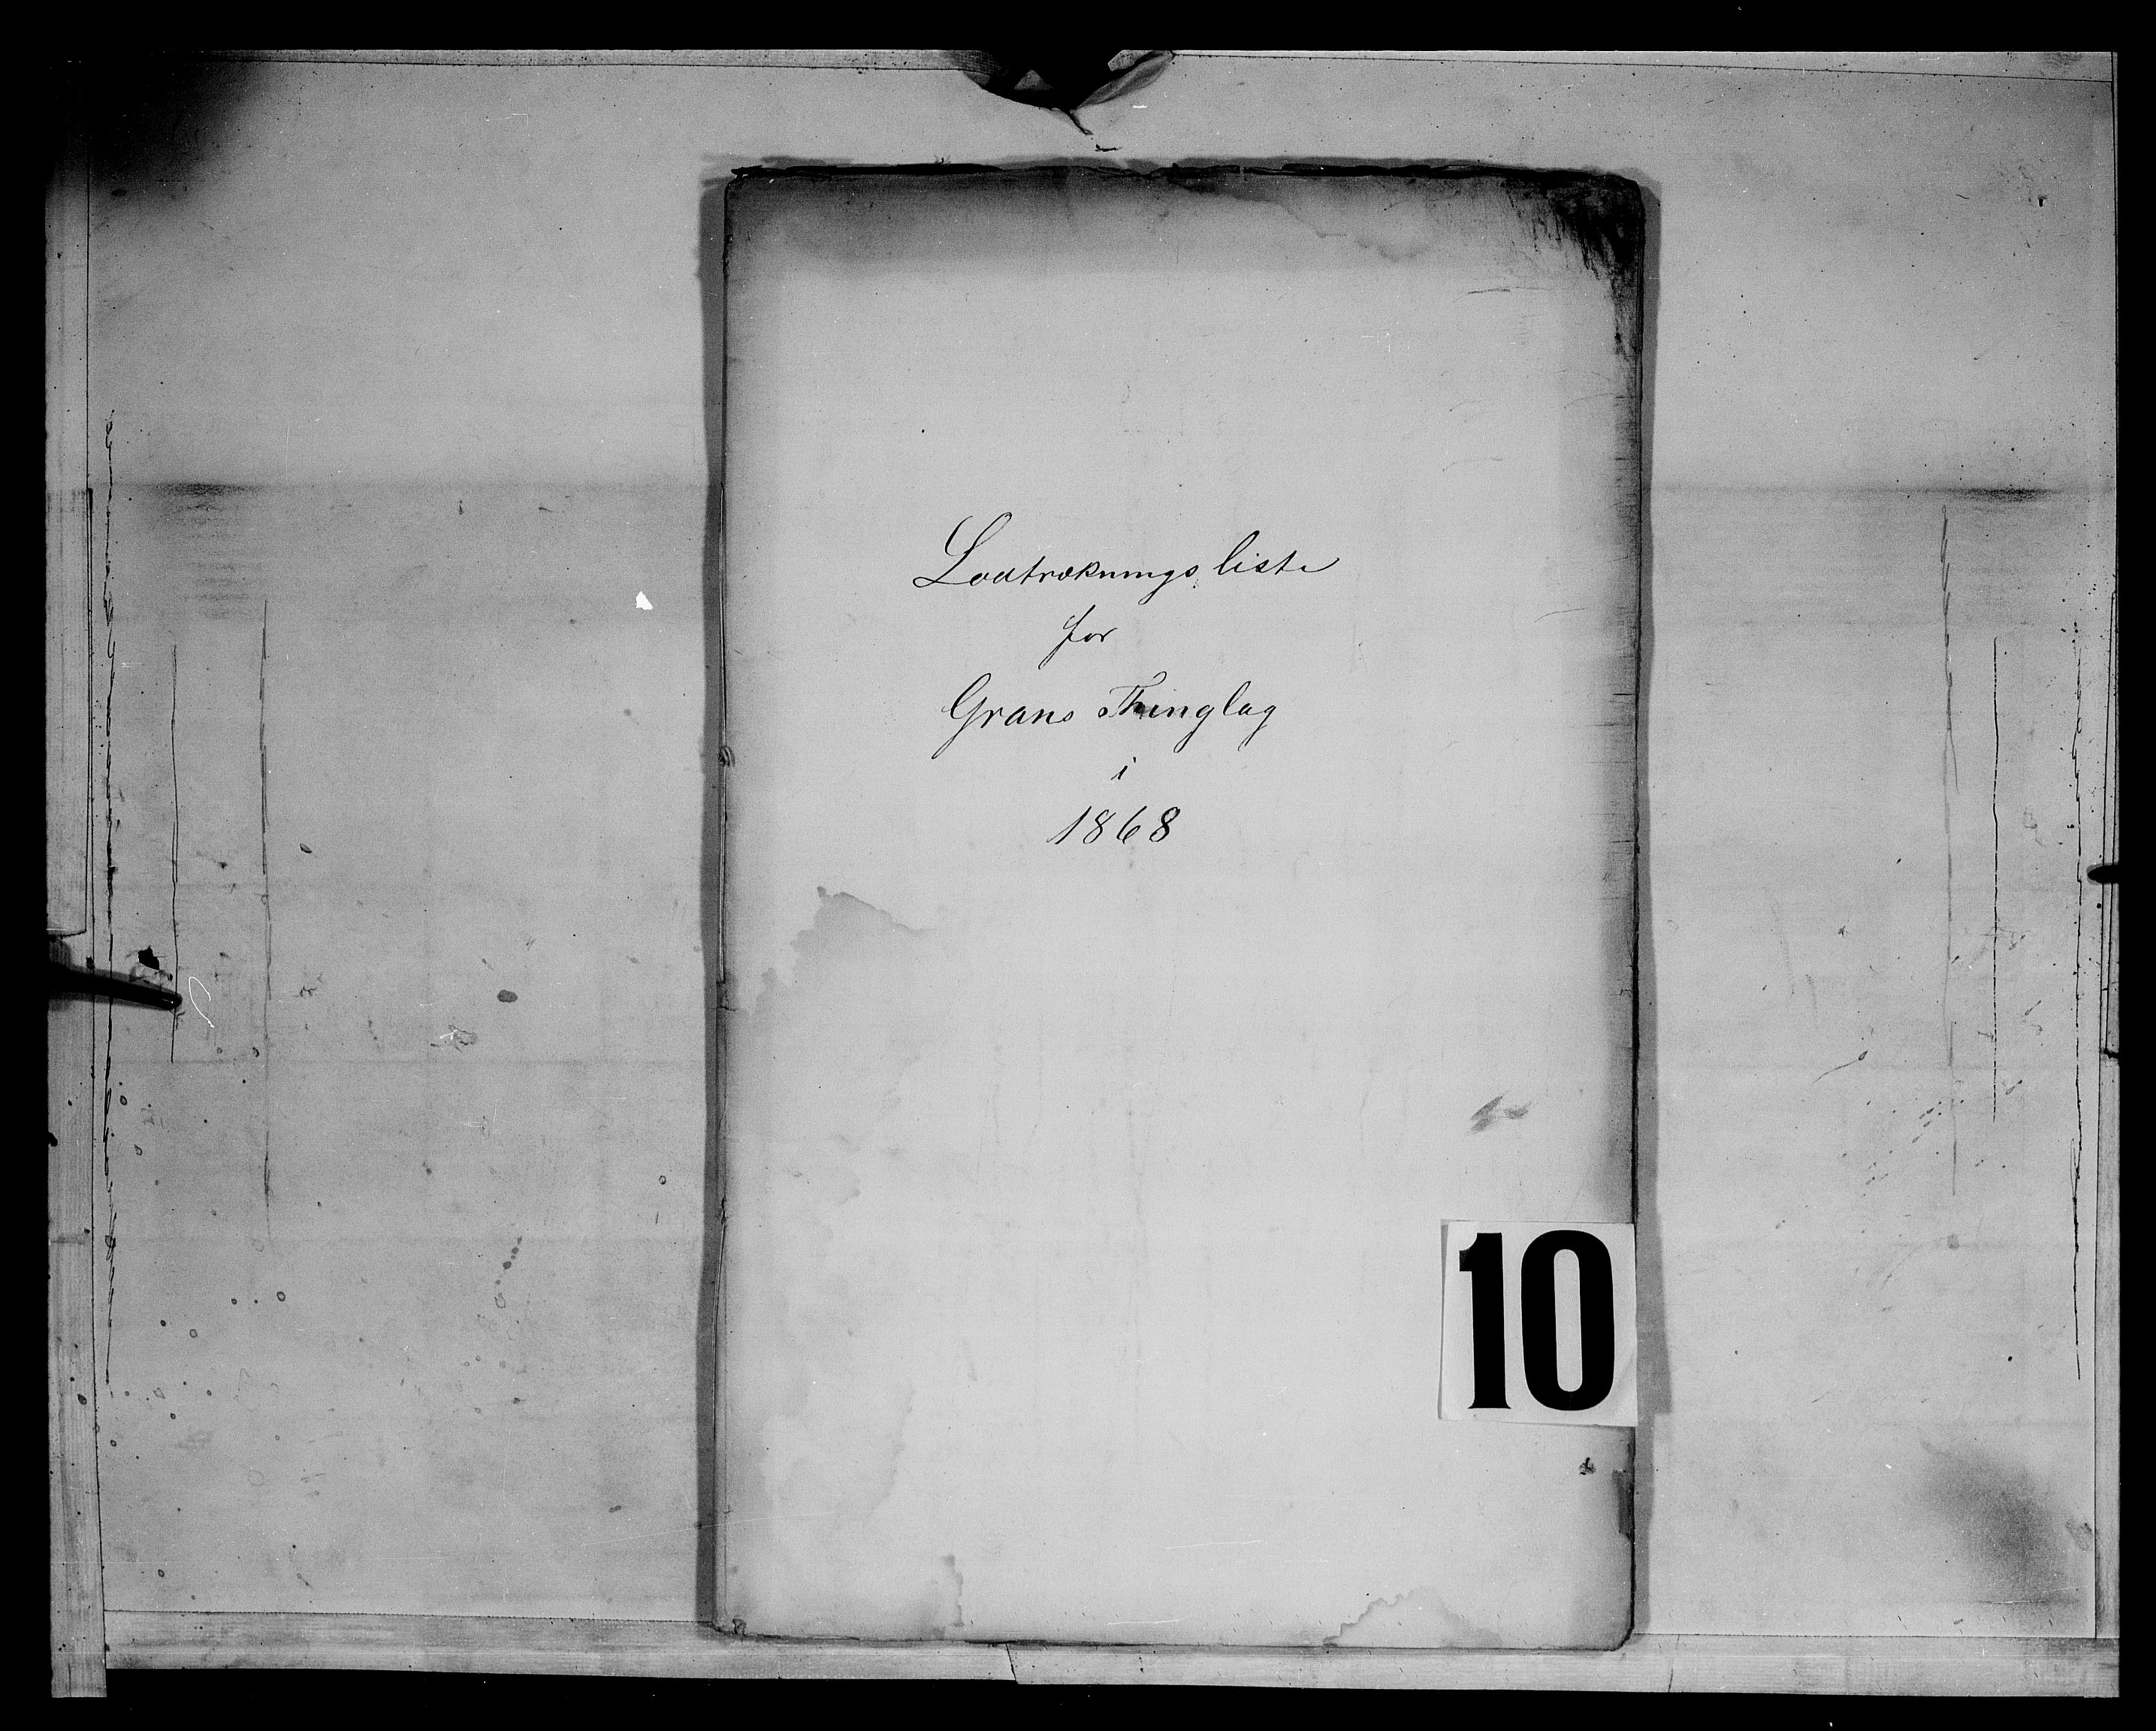 Lodtrækningsliste
for
Grans Thinglag
i
1868
10